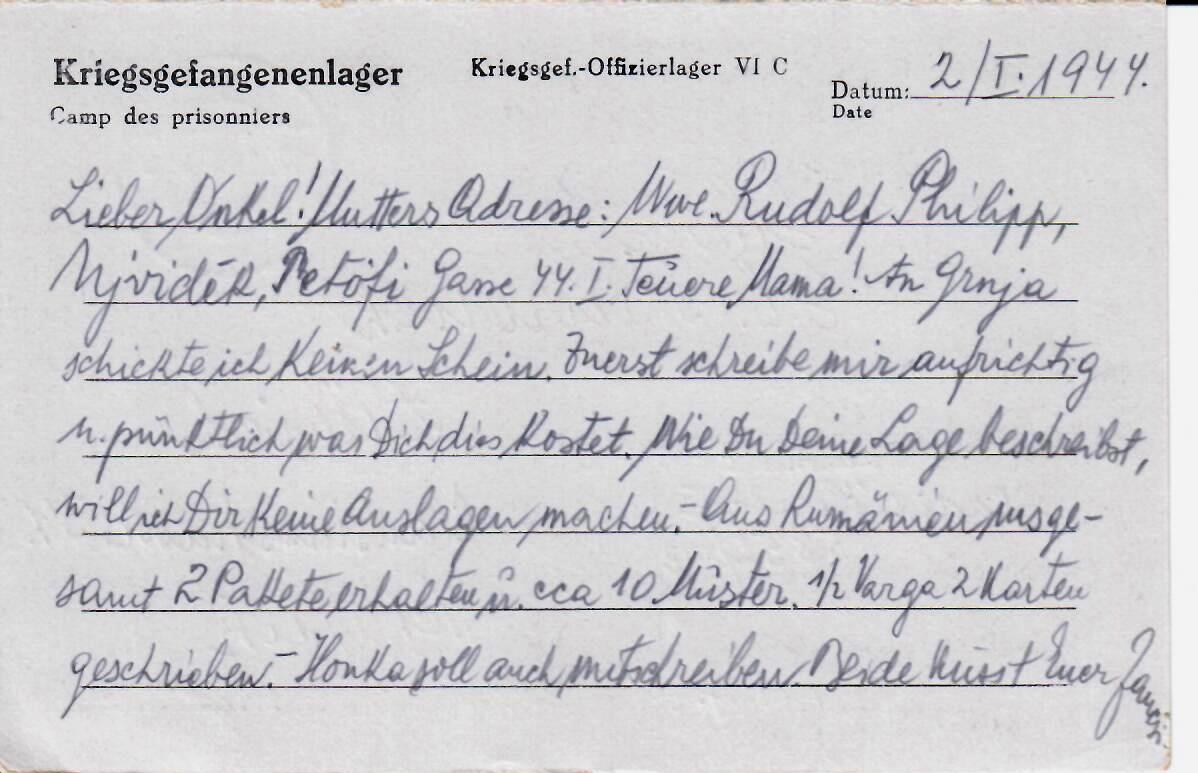 Kriegsgefangenenlager
Camp des prisonniers
Kriegsgef.-Offizierlager VI C
Datum: 2/I.1944.
Date
Lieber Onkel! Mutters Adresse: Wwe. Rudolf Philipp,
Ujvidék, Petöfi Gasse 44. I. Teuere Mama! An Grnja
schickte ich keinen Schein. Zuerst schreibe mir aufrichtig
u. pünktlich was Dich dies kostet. Wie Du Deine Lage beschreibst,
will ich Dir keine Auslagen machen.- Aus Rumänien insge-
samt 2 Pakete erhalten u. cca 10 Müster. Varga 2 Karten
geschrieben.- Ilonka soll auch mitschreiben. Beide küsst Euer